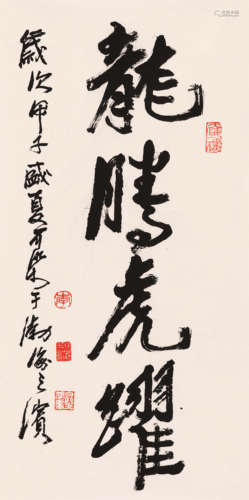 龍騰虎躍
歲次甲子盛夏開榮于渤海之濱